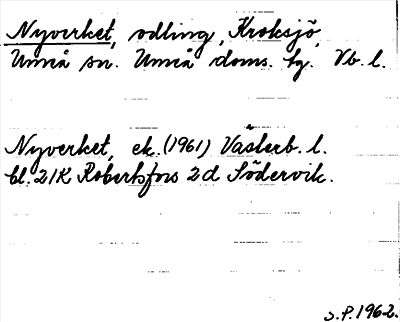 Nyverket, odling, Kroksjö,
Umeå sn. Umeå doms. tg. Vb. l.
Nyverket, ek. (1961) Västerb. l.
bl. 21K Robertsfors 2d Södervik.
S.P. 1962.